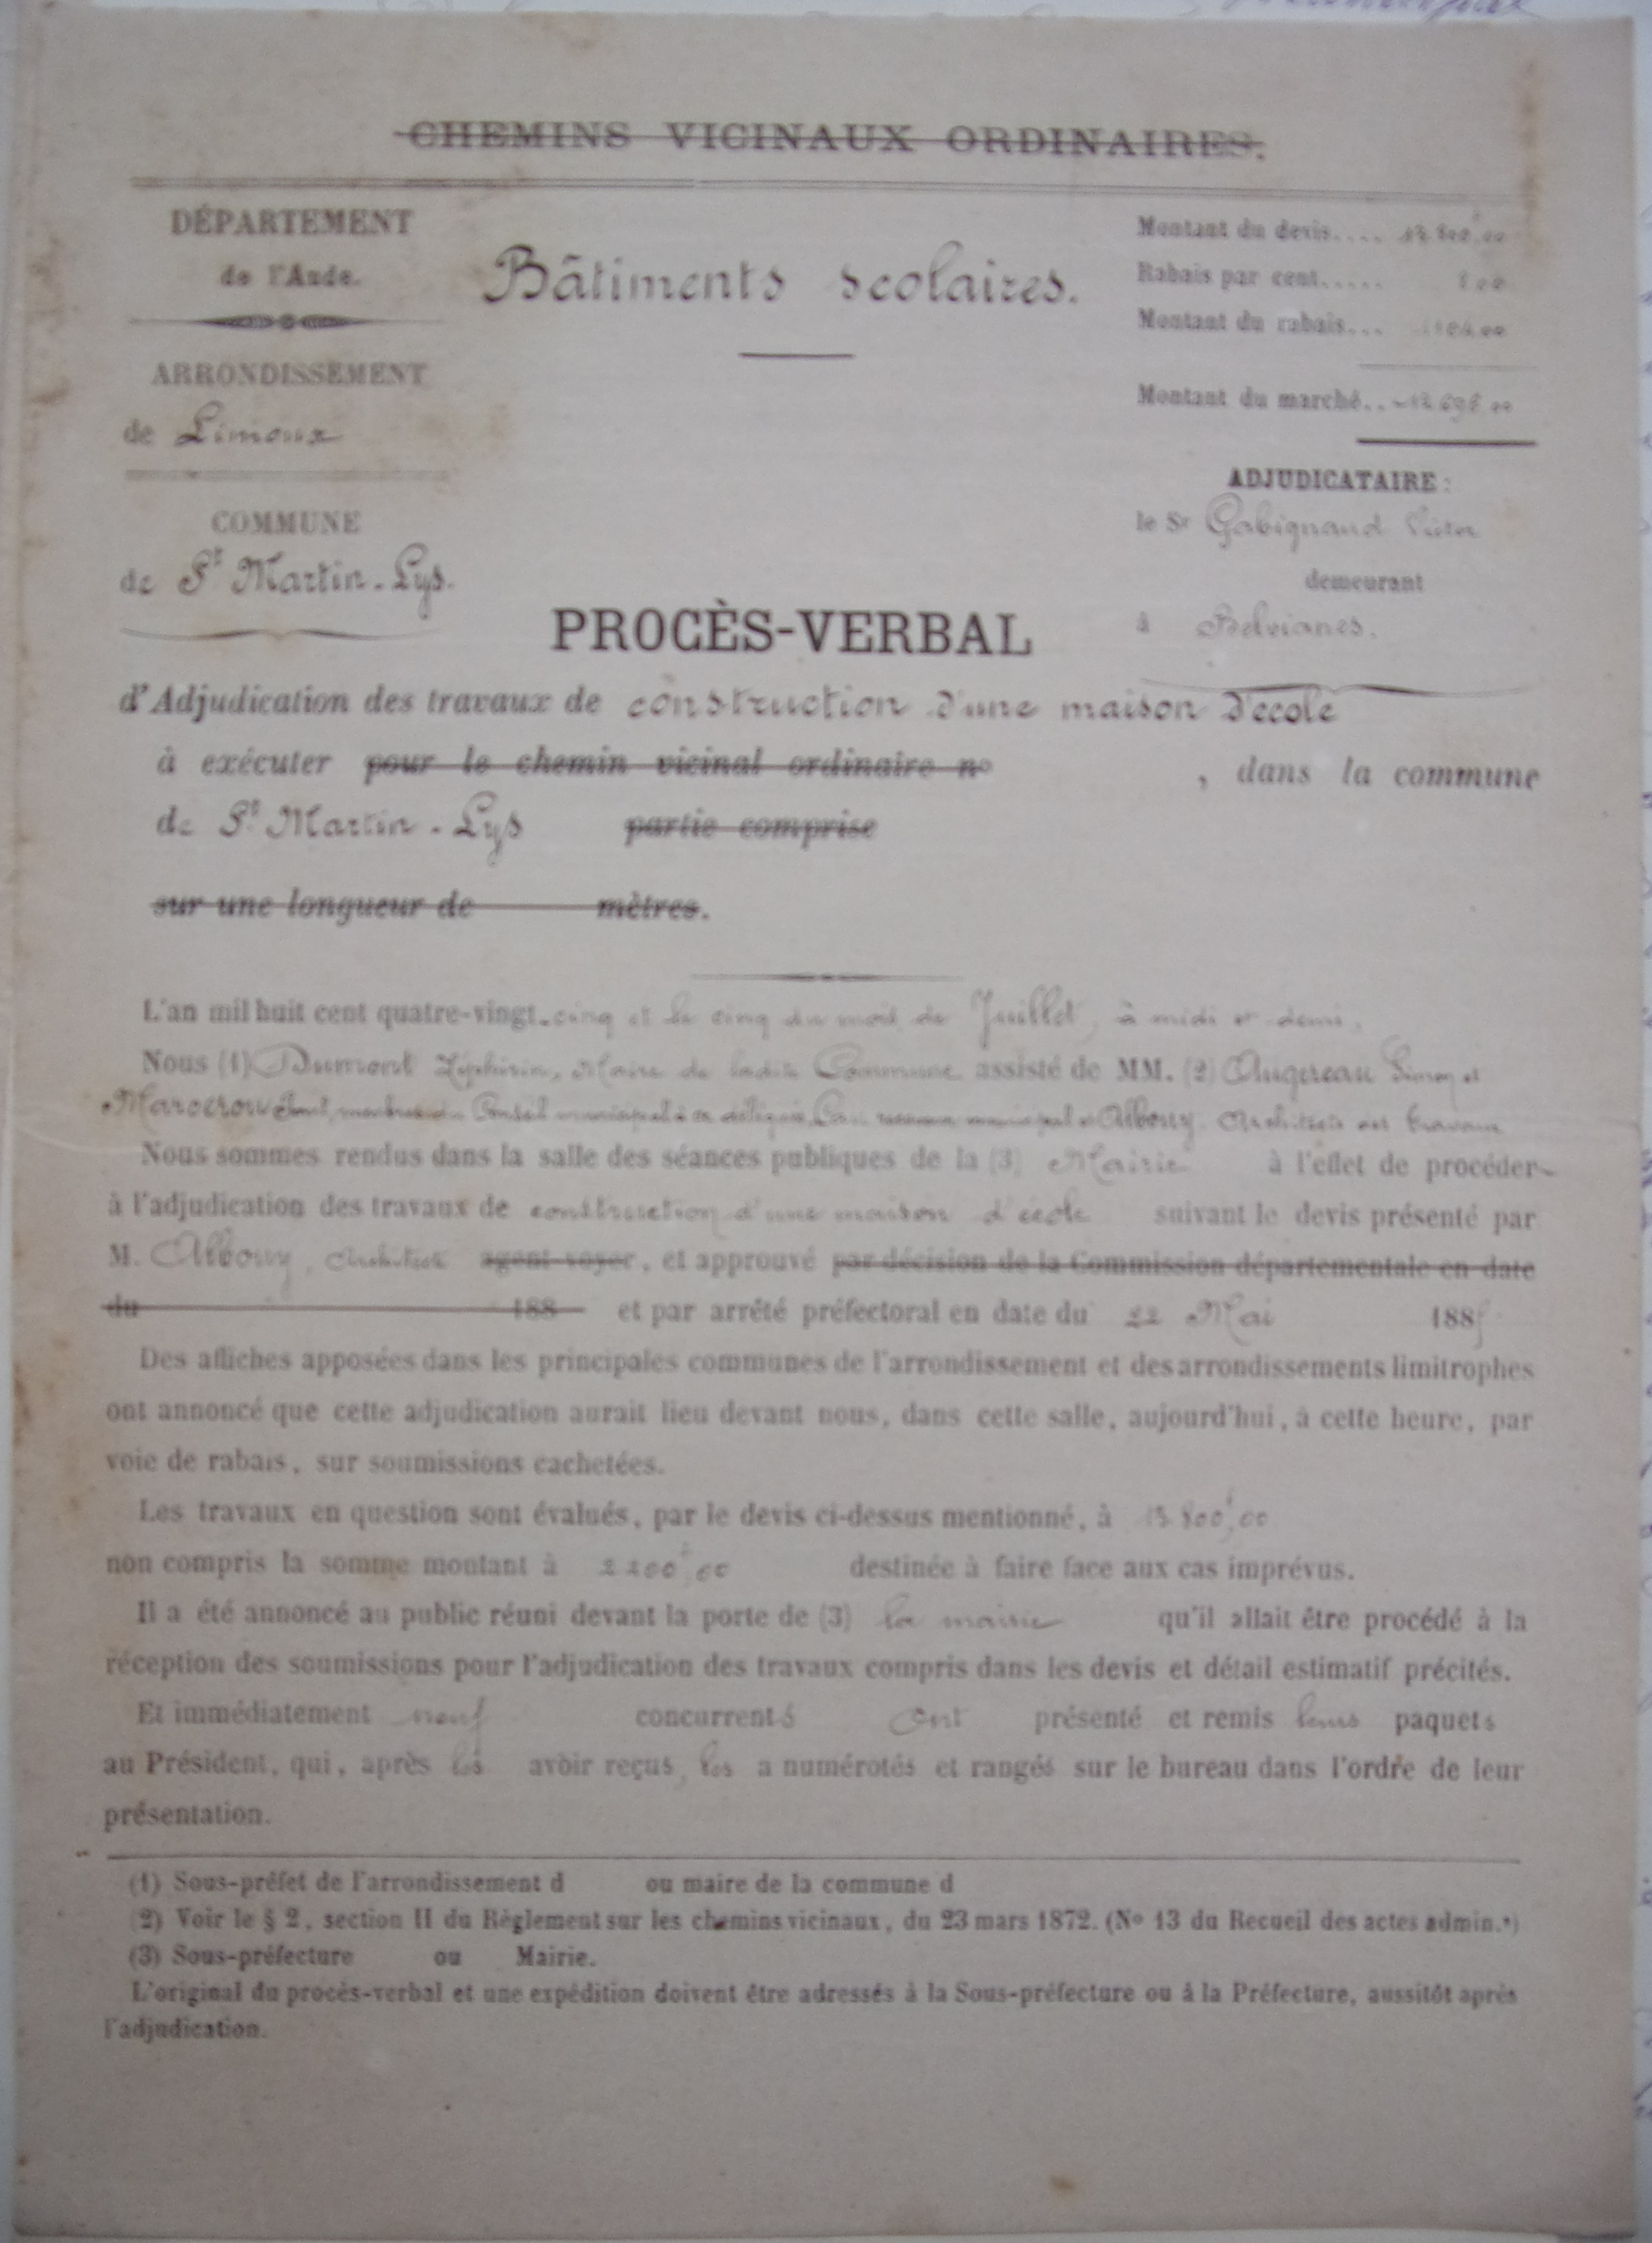 CHEMINS VICINAUX ORDINAIRES.
DÉPARTEMENT
de l'Aude.
ARRONDISSEMENT
de Limoux
COMMUNE
de St Martin-Lys.
Bâtiments scolaires.
Montant du devis.... 13.800,00
Rabais par cent..... 8.00
Montant du rabais... 1104.00
Montant du marché.. 12.696.00
ADJUDICATAIRE :
le Sr Gabignaud Victor
demeurant
à Belvianes.
PROCÈS-VERBAL
d'Adjudication des travaux de construction d'une maison d'école
à exécuter pour le chemin vicinal ordinaire no , dans la commune
de St Martin-Lys partie comprise
sur une longueur de mètres.
L'an mil huit cent quatre-vingt-cinq et le cinq du mois de Juillet, à midi et demi,
Nous (1) Dumont Zéphirin, Maire de ladite Commune assisté de MM. (2) Augereau et
membres du Conseil municipal à ce délégués, receveur municipal et Albouy, Architecte des travaux
Nous sommes rendus dans la salle des séances publiques de la (3) Mairie à l'effet de procéder
à l'adjudication des travaux de construction d'une maison d'école suivant le devis présenté par
M. Albouy, Architecte agent-voyer, et approuvé par décision de la Commission départementale en date
du 188 et par arrêté préfectoral en date du 22 Mai 1885
Des affiches apposées dans les principales communes de l'arrondissement et des arrondissements limitrophes
ont annoncé que cette adjudication aurait lieu devant nous, dans cette salle, aujourd'hui, à cette heure, par
voie de rabais, sur soumissions cachetées.
Les travaux en question sont évalués, par le devis ci-dessus mentionné, à 13.800f,00
non compris la somme montant à 2200f,00 destinée à faire face aux cas imprévus.
Il a été annoncé au public réuni devant la porte de (3) la mairie qu'il allait être procédé à la
réception des soumissions pour l'adjudication des travaux compris dans les devis et détail estimatif précités.
Et immédiatement neuf concurrents ont présenté et remis leurs paquets
au Président, qui, après les avoir reçus, les a numérotés et rangés sur le bureau dans l'ordre de leur
présentation.
(1) Sous-préfet de l'arrondissement d ou maire de la commune d
(2) Voir le § 2, section II du Règlement sur les chemins vicinaux, du 23 mars 1872. (No 13 du Recueil des actes admin.s)
(3) Sous-préfecture ou Mairie.
L'original du procès-verbal et une expédition doivent être adressés à la Sous-préfecture ou à la Préfecture, aussitôt après
l'adjudication.